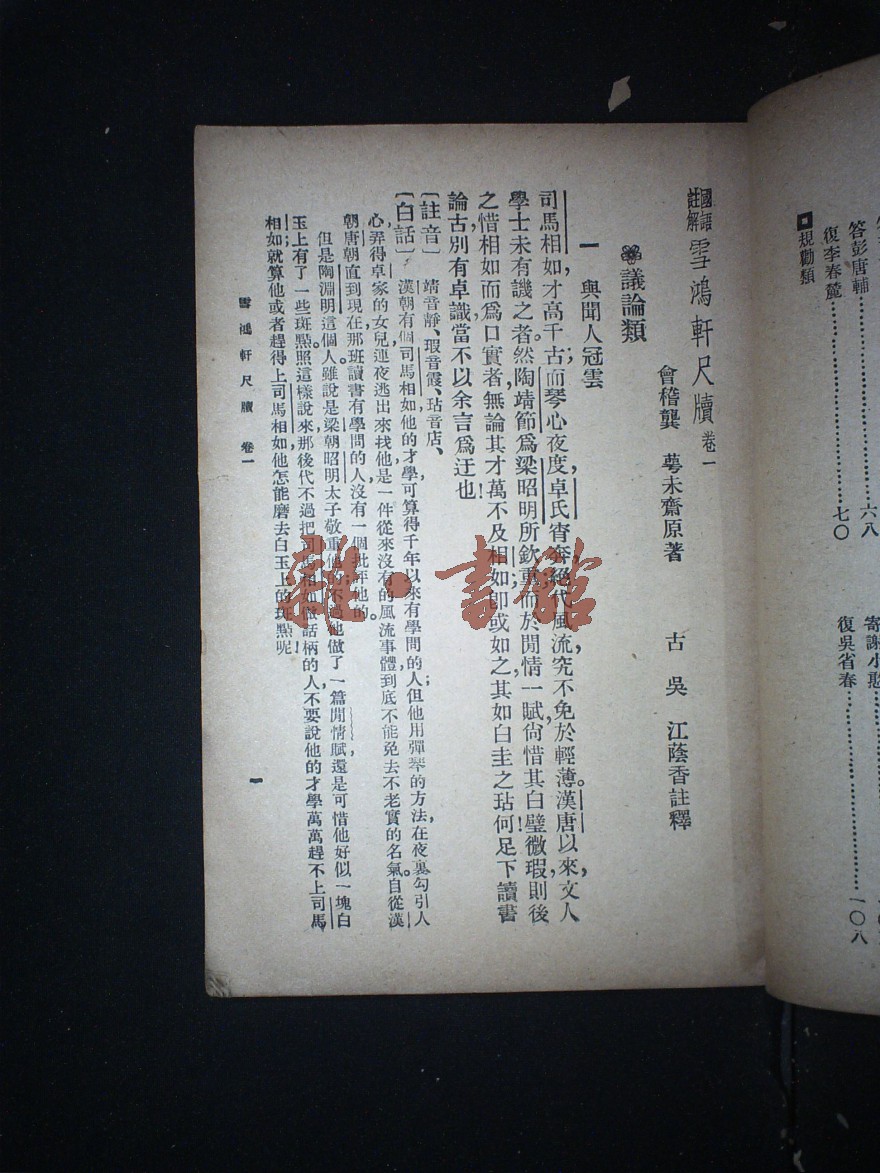 國語註解 雪鴻軒尺牘 卷一
會稽龔 萼未齋原著 古吳 江蔭香註釋
議論類
一 與聞人冠雲
司馬相如,才高千古;而琴心夜度,卓氏宵奔,絕代風流,究不免於輕薄。漢唐以來,文人
學士未有譏之者。然陶靖節爲梁昭明所欽重,而於閒情一賦,尙惜其白璧微瑕,則後
之惜相如而爲口實者,無論其才萬不及相如,卽或如之,其如白圭之玷何!足下讀書
論古,別有卓識,當不以余言爲迂也!
〔註音〕 靖音靜、瑕音霞、玷音店、
〔白話〕 漢朝有個司馬相如,他的才學可算得千年以來有學問的人;但他用彈琴的方法,在夜裏勾引人
心,弄得卓家的女兒連夜逃出來找他,是一件從來沒有的風流事體,到底不能免去不老實的名氣。自從漢
朝唐朝直到現在,那班讀書有學問的人,沒有一個批評他的。
但是陶淵明這個人,雖說是梁朝昭明太子敬重他的,不過他做了一篇閒情賦,還是可惜他好似一塊白
玉上有了一些斑點。照這樣說來,那後代不過把司馬相如做話柄的人,不要說他的才學萬萬趕不上司馬
相如;就算他或者趕得上司馬相如,他怎能磨去白玉上的斑點呢!
雪鴻軒尺牘 卷一
一
答彭唐輔……六八
復李春麓……七〇
規勸類
寄謝小憨
復吳省春……一〇八
雜·書館